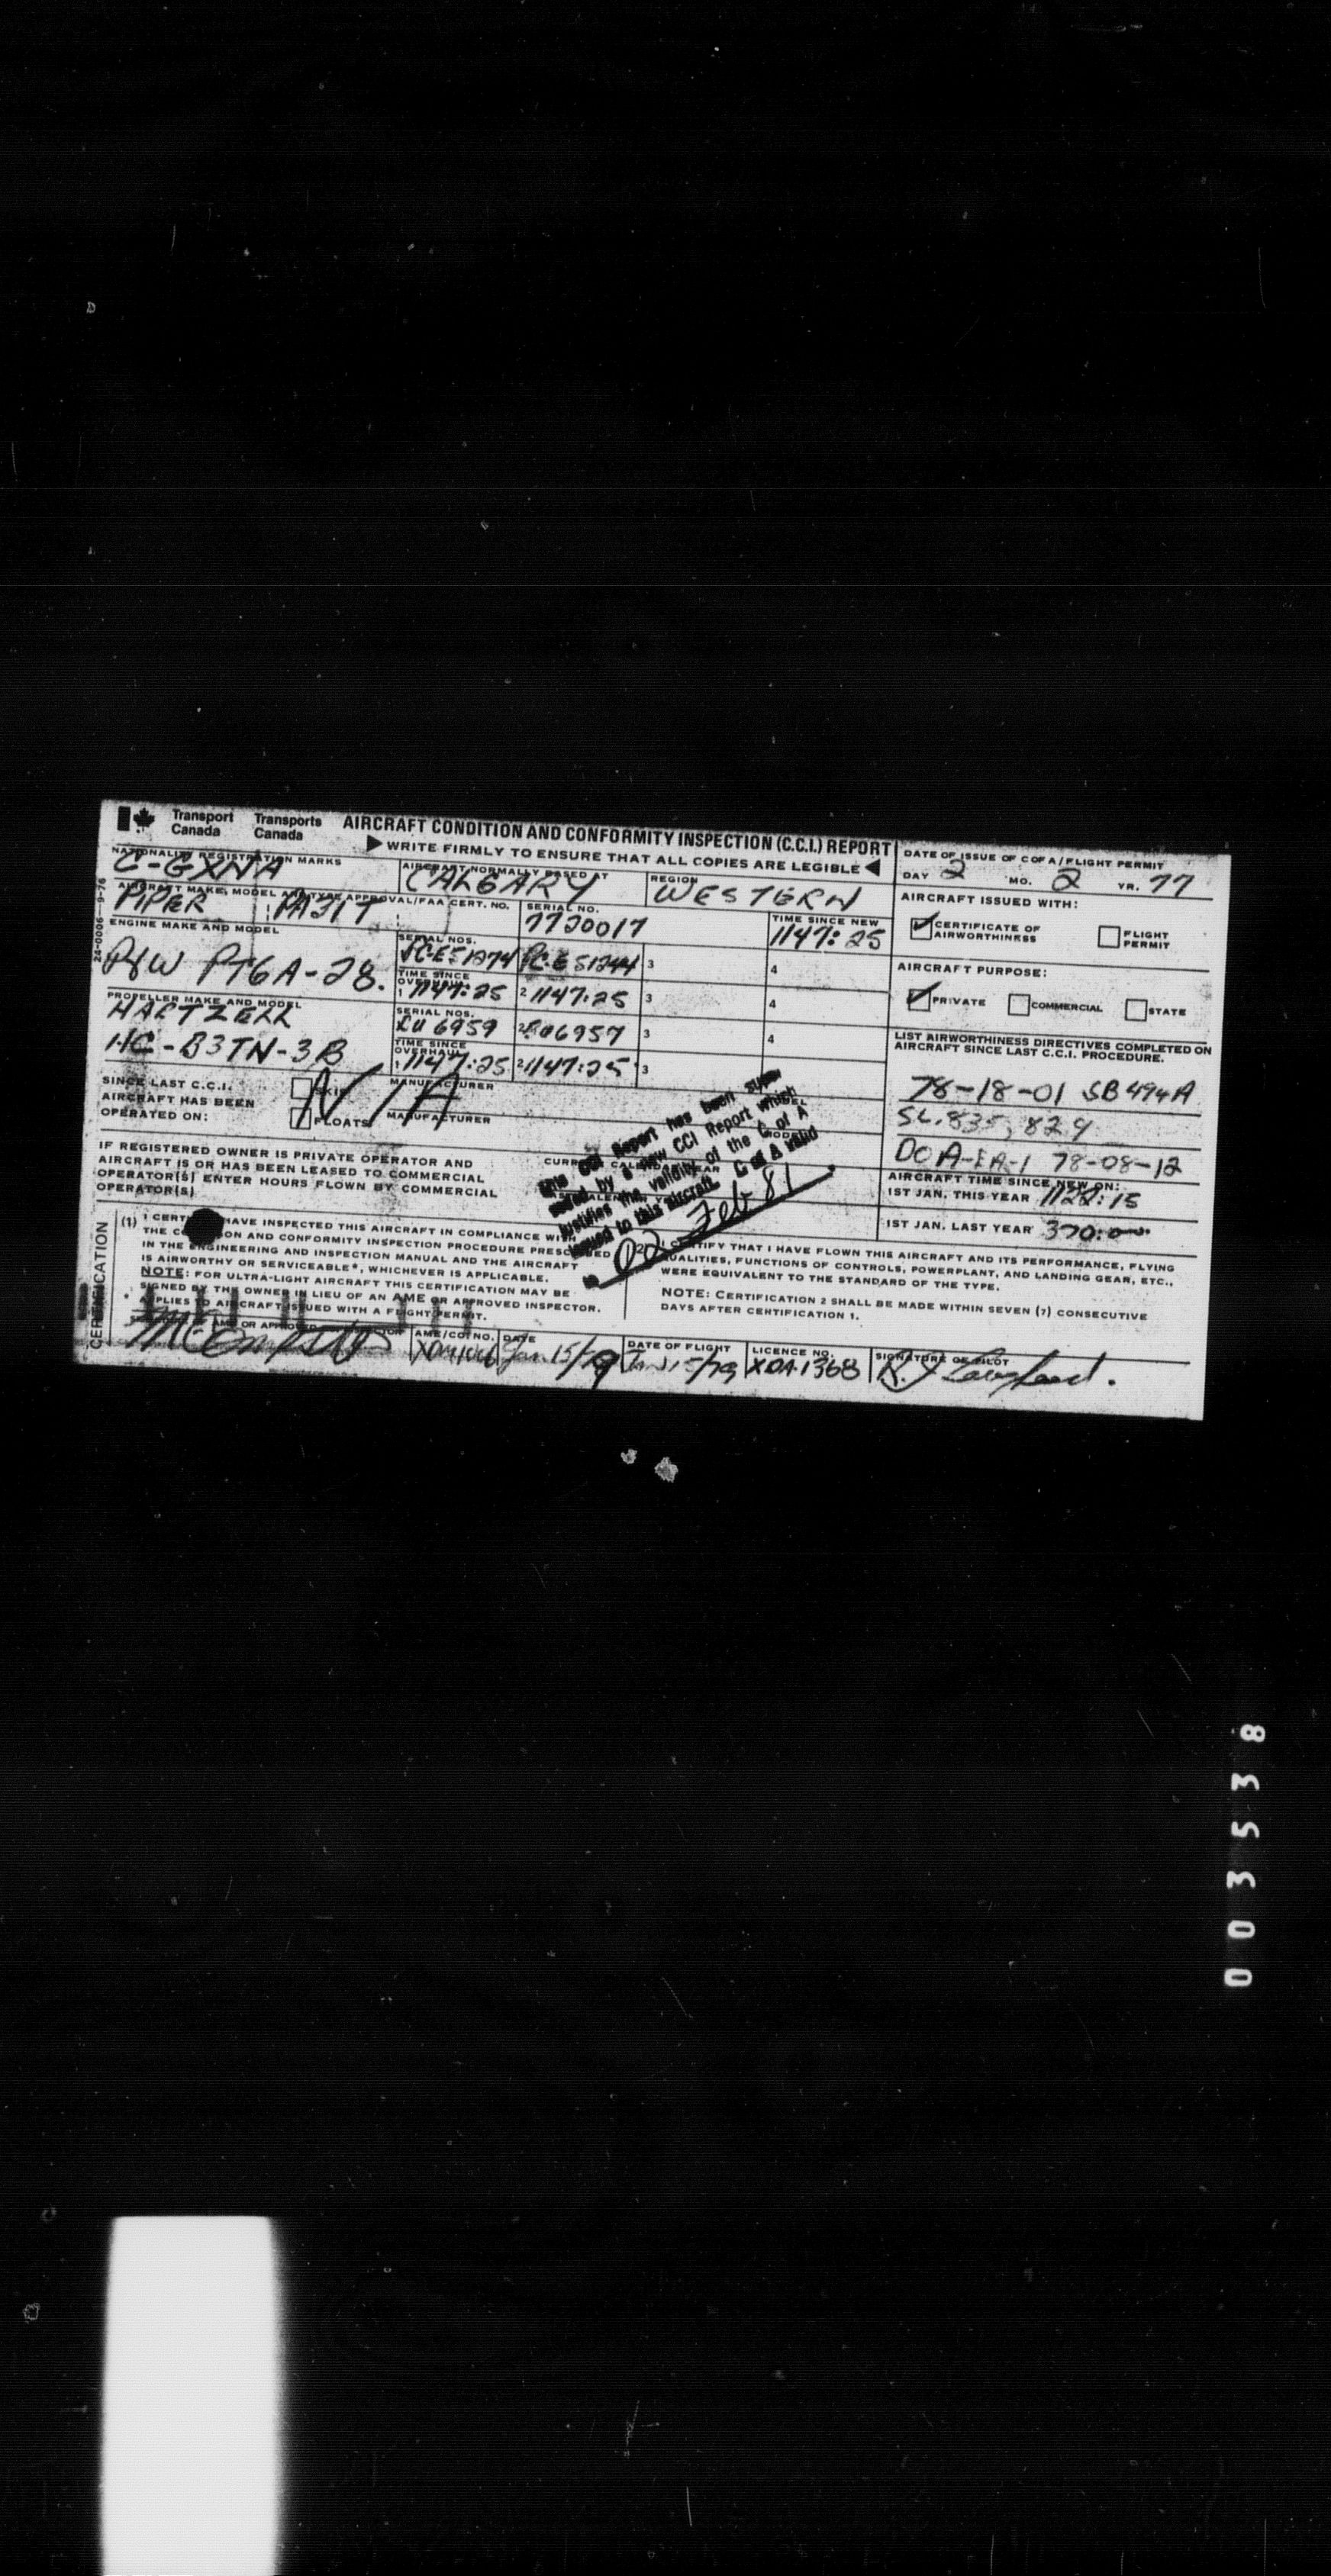 Transport Canada Transports Canada
AIRCRAFT CONDITION AND CONFORMITY INSPECTION (C.C.I.) REPORT
▶ WRITE FIRMLY TO ENSURE THAT ALL COPIES ARE LEGIBLE ◀
24-0006 9-76
NATIONALITY REGISTRATION MARKS
C-GXNA
AIRCRAFT NORMALLY BASED AT
CALGARY
REGION
WESTERN
DATE OF ISSUE OF C OF A/FLIGHT PERMIT
DAY 2 MO. 2 YR. 77
AIRCRAFT MAKE, MODEL AND TYPE APPROVAL/FAA CERT. NO.
PIPER PA31T
SERIAL NO.
7720017
TIME SINCE NEW
1147:25
AIRCRAFT ISSUED WITH:
CERTIFICATE OF AIRWORTHINESS
FLIGHT PERMIT
ENGINE MAKE AND MODEL
P&W PT6A-28.
SERIAL NOS.
PC-E51274 PC-E51244 3 4
TIME SINCE OVERHAUL
1 1147:25 2 1147:25 3 4
AIRCRAFT PURPOSE:
PRIVATE COMMERCIAL STATE
PROPELLER MAKE AND MODEL
HARTZELL
HC-B3TN-3B
SERIAL NOS.
BU 6959 2 BU6957 3 4
TIME SINCE OVERHAUL
1 1147:25 2 1147:25 3
LIST AIRWORTHINESS DIRECTIVES COMPLETED ON
AIRCRAFT SINCE LAST C.C.I. PROCEDURE.
78-18-01 SB494A
SL.835, 829
DOA-EA-1 78-08-12
SINCE LAST C.C.I.
AIRCRAFT HAS BEEN
OPERATED ON:
SKI MANUFACTURER
FLOATS MANUFACTURER
N/A
IF REGISTERED OWNER IS PRIVATE OPERATOR AND
AIRCRAFT IS OR HAS BEEN LEASED TO COMMERCIAL
OPERATOR(S) ENTER HOURS FLOWN BY COMMERCIAL
OPERATOR(S)
This CCI Report has been super
seded by a new CCI Report which
justifies the validity of the C of A
issued to this aircraft. C of A valid
to 02 Feb 81.
AIRCRAFT TIME SINCE NEW ON:
1ST JAN. THIS YEAR 1122:15
1ST JAN. LAST YEAR 370:00
CERTIFICATION
(1) I CERTIFY HAVE INSPECTED THIS AIRCRAFT IN COMPLIANCE WITH
THE CONDITION AND CONFORMITY INSPECTION PROCEDURE PRESCRIBED
IN THE ENGINEERING AND INSPECTION MANUAL AND THE AIRCRAFT
IS AIRWORTHY OR SERVICEABLE*, WHICHEVER IS APPLICABLE.
NOTE: FOR ULTRA-LIGHT AIRCRAFT THIS CERTIFICATION MAY BE
SIGNED BY THE OWNER IN LIEU OF AN AME OR APPROVED INSPECTOR.
* APPLIES TO AIRCRAFT ISSUED WITH A FLIGHT PERMIT.
2 I CERTIFY THAT I HAVE FLOWN THIS AIRCRAFT AND ITS PERFORMANCE, FLYING
QUALITIES, FUNCTIONS OF CONTROLS, POWERPLANT, AND LANDING GEAR, ETC.,
WERE EQUIVALENT TO THE STANDARD OF THE TYPE.
NOTE: CERTIFICATION 2 SHALL BE MADE WITHIN SEVEN (7) CONSECUTIVE
DAYS AFTER CERTIFICATION 1.
SIGNATURE OF AME OR APPROVED INSPECTOR
AME/COI NO.
DATE
Jan. 15/79
DATE OF FLIGHT
Jan 15/79
LICENCE NO.
XDA-1368
SIGNATURE OF PILOT
003538